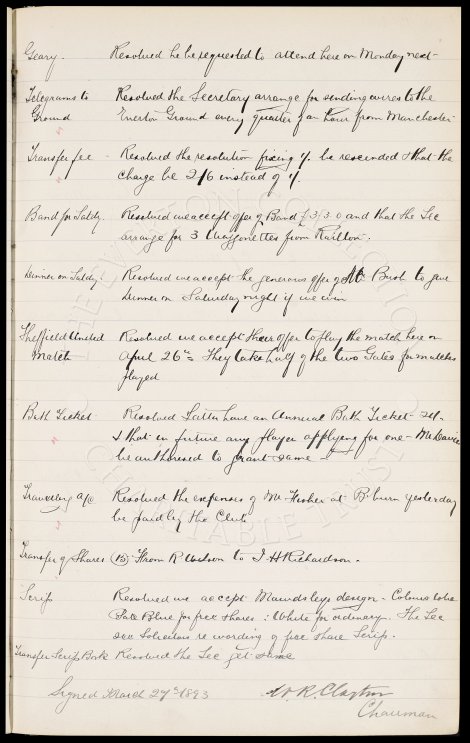 Geary. Resolved he be requested to attend here on Monday next
Telegrams to Resolved the Secretary arrange for sending wires to the
Ground Everton Ground every quarter of an hour from Manchester
Transfer fee Resolved the resolution fixing 1/- be rescinded & that the
charge be 2/6 instead of 1/-
Band for Satdy. Resolved we accept offer of Band £3.3.0 and that the Sec
arrange for 3 Waggonettes from Railton.
Dinner on Satdy. Resolved we accept the generous offer of Mr Bush to give
dinner on Saturday night if we win
Sheffield United Resolved we accept their offer to play the match here on
Match April 26th They take half of the two Gates for matches
played
Bath Ticket Resolved Latta have an Annual Bath Ticket
& that in future any player applying for one Mr Davies
be authorised to grant same
Travelling a/c Resolved the expenses of Mr Fisher at B.burn yesterday
be paid by the Club
Transfer of Shares (15) From R Wilson to J H Richardson.
Scrip Resolved we accept Mawdsleys design - Colours to be
Pale Blue for free shares : White for ordinary. The Sec
see Solicitors re wording of free share Scrip.
Transfer Scrip Book Resolved the Sec get same
Signed March 27th 1893 W.R. Clayton
Chairman
THE EVERTON COLLECTION
CHARITABLE TRUST